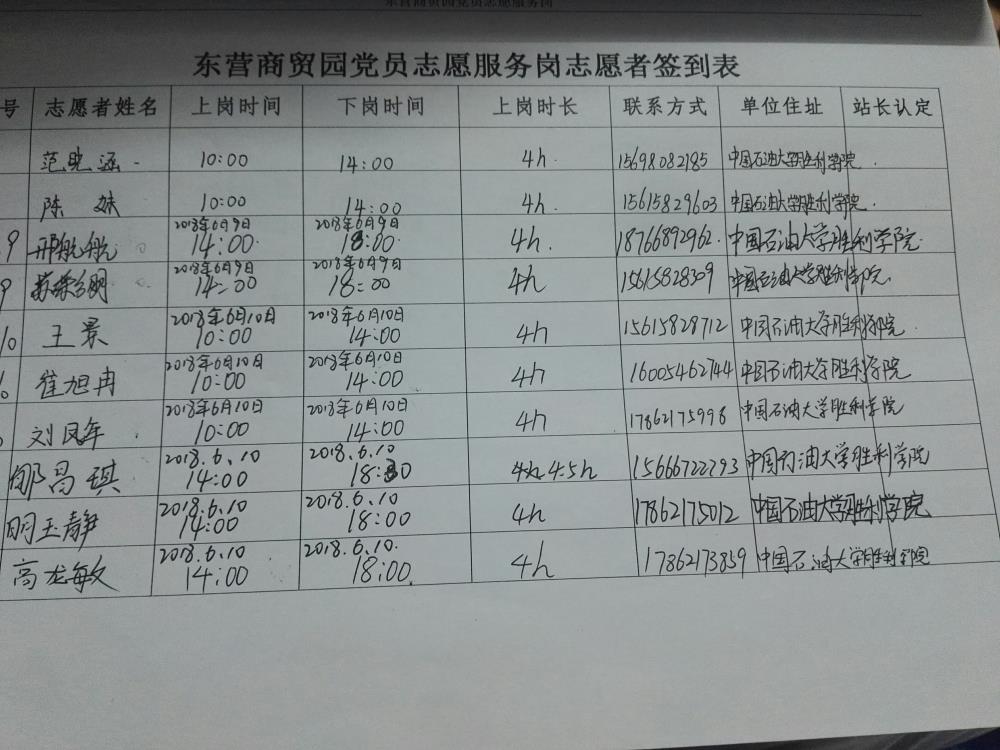 东营商贸园党员志愿服务岗
东营商贸园党员志愿服务岗志愿者签到表
号 志愿者姓名 上岗时间 下岗时间 上岗时长 联系方式 单位住址 站长认定
范晓涵 10:00 14:00 4h. 15698082185 中国石油大学胜利学院.
陈妹 10:00 14:00 4h. 15615829603 中国石油大学胜利学院.
2018年6月9日 2018年6月9日
9 邢航航 14:00. 18:00. 4h. 18766892962. 中国石油大学胜利学院.
2018年6月9日 2018年6月9日
9 14:00 18:00 4h 15615828309 中国石油大学胜利学院.
2018年6月10日 2018年6月10日
10 王景 10:00 14:00 4h 15615828712 中国石油大学胜利学院.
2018年6月10日 2018年6月10日
崔旭冉 10:00 14:00 4h 16005462744 中国石油大学胜利学院
2018年6月10日 2018年6月10日
刘凤年 10:00 14:00 4h 17862175998 中国石油大学胜利学院
2018.6.10 2018.6.10
郇昌琪 14:00 18:30 4h 4.5h 15666722793 中国石油大学胜利学院
2018.6.10 2018.6.10
明玉静 14:00 18:00 4h 17862175012 中国石油大学胜利学院
2018.6.10 2018.6.10.
高龙敏 14:00 18:00 4h 17862173859 中国石油大学胜利学院